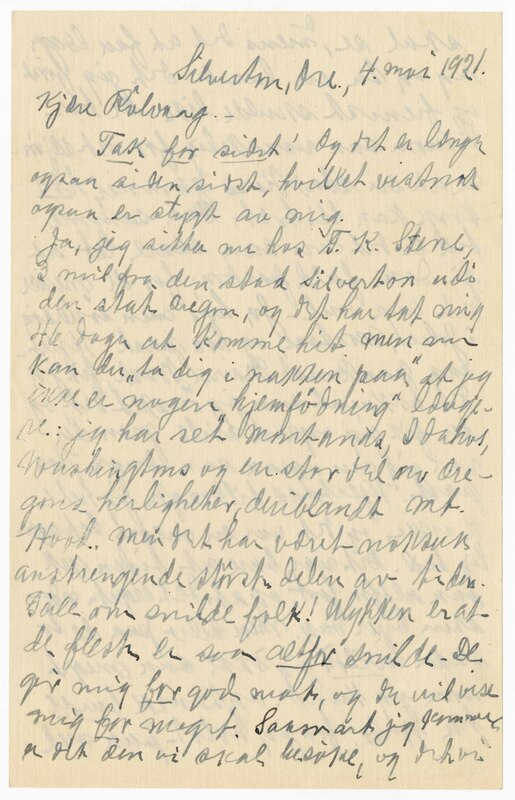 Silverton, Ore., 4. mai 1921.
Kjære Rölvaag. -
Tak for sidst! Og det er længe
ogsaa siden sidst, hvilket vistnok
ogsaa er stygt av mig.
Ja, jeg sitter nu hos T. K. Stene,
3 mil fra den stad Silverton udi
den stat Oregon, og det har tat mig
46 dage at komme hit men nu
kan du "ta dig i nakken paa" at jeg
ikke er nogen "hjemfödning" længe-
re: jeg har set Montanas, Idahos,
Washingtons og en stor del av Ore-
gons herligheter, deriblandt Mt.
Hood. Men det har været noksaa
anstrengende störste delen av tiden.
Tale om snilde folk! Ulykken er at
de fleste er saa altfor snilde - De
gir mig for god mat, og de vil vise
mig for meget. Saasnart jeg kommer
er det den vi skal besöke, og det vi